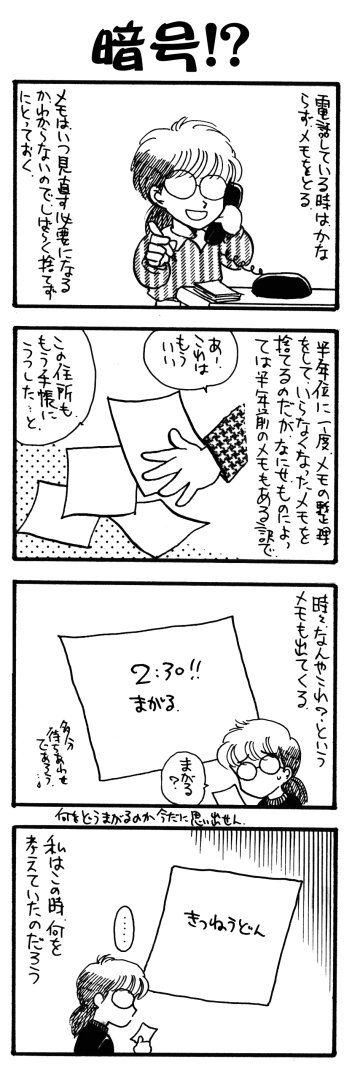 暗号!?
電話している時は、かな
らず、メモをとる。
メモはいつ見直す必要になる
かわからないのでしばらく捨てず
にとっておく。
半年位に一度、メモの整理
をして、いらなくなったメモを
捨てるのだが、なにせものによっ
ては半年前のメモもある訳で
あー
これは
もう
いい
この住所も
もう手帳に
うつした…と、
時々、なんやこれ?という
メモも出てくる。
2:30!!
まがる。
まがる
?
多分
待ちあわせ
であろう…。
何をどうまがるのか今だに思い出せん。
きつねうどん
……
私はこの時、何を
考えていたのだろう